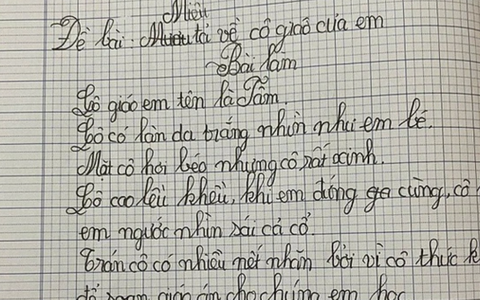 Miêu
Đề bài: Mươu tả về cô giáo của em
Bài làm
Cô giáo em tên là Tâm.
Cô có làn da trắng nhìn như em bé.
Mặt cô hơi beo nhưng cô rất xinh.
Cô cao lêu khêu, khi em đứng gần cùng, cô
em ngước nhìn sái cả cổ.
Trán cô có nhiều nết nhăn bởi vì cô thức k
để soạn giáo án cho chúng em học